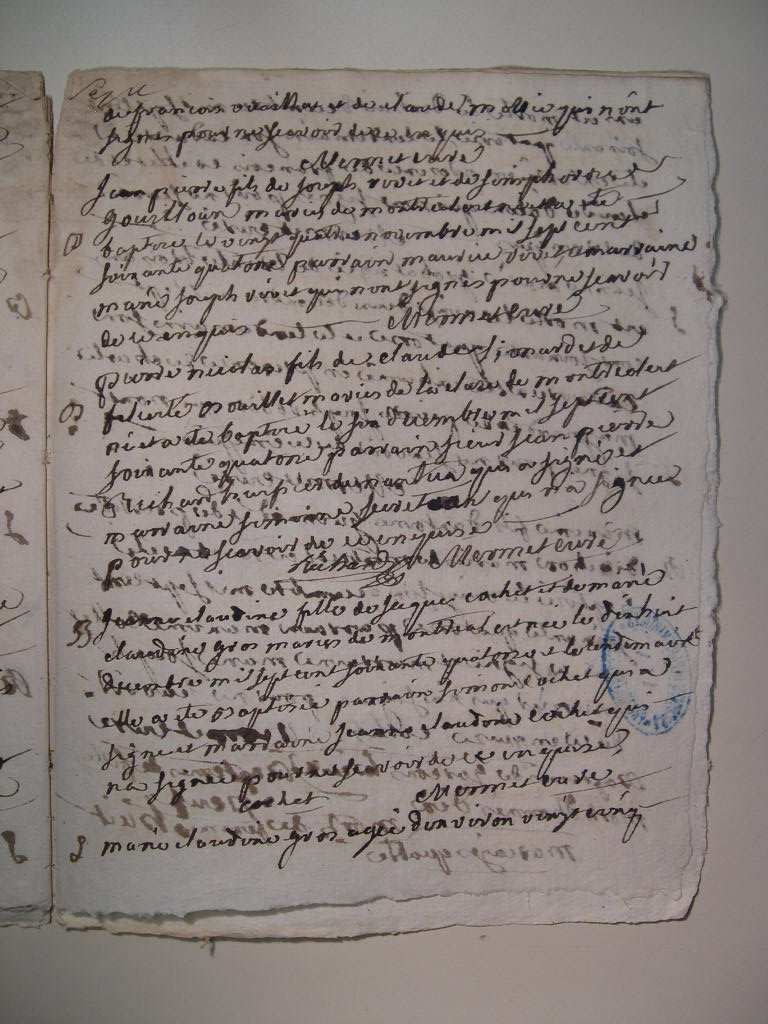 de francois et de claude qui nont
signé pour ne scavoir de ce enquis
Mermet curé
Jean pierre fils de Joseph vivit et de simphorose
gouilloux mariés de montreal est né et a été
B baptisé le vingt quatre novembre mil sept cent
soixante quatorze parrain maurice vivit marraine
marie Joseph vivit qui nont signés pour ne scavoir
de ce enquis Mermet curé
pierre nicolas fils de claude et de
B felicité mariés de la cluse de montreal est
né et a été baptisé le six decembre mil sept cent
soixante quatorze parrain sieur jean pierre
Richard huissier de nantua qui a signé et
marraine simoine qui na signée
pour ne scavoir de ce enquise
Richard Mermet curé
B Jeanne claudine fille de Jacque cochet et de marie
claudine gros mariés de montreal est née le dixhuit
decembre mil sept cent soixante quatorze et le lendemain
elle a été Baptisée parrain simon cochet qui a
signé et marraine Jeanne claudine cochet qui
na signée pour ne scavoir de ce enquise
cochet Mermet curé
S marie claudine gros agée denviron vingt cinq